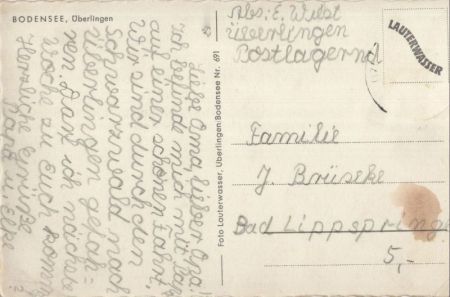 BODENSEE, Überlingen
Liebe Oma, lieber Opa!
Ich befinde mich mit
auf einer schönen Fahrt.
Wir sind durch den
Schwarzwald nach
Überlingen gefah=
ren. Darf ich nächste
Woche zu Euch komm
Herzliche Grüße
Foto Lauterwasser, Überlingen-Bodensee Nr. 691
Abs: E. Wilst
Üsserlingen
Postlagernd
LAUTERWASSER
Familie
J. Brüseke
Bad Lippspringe
5,-